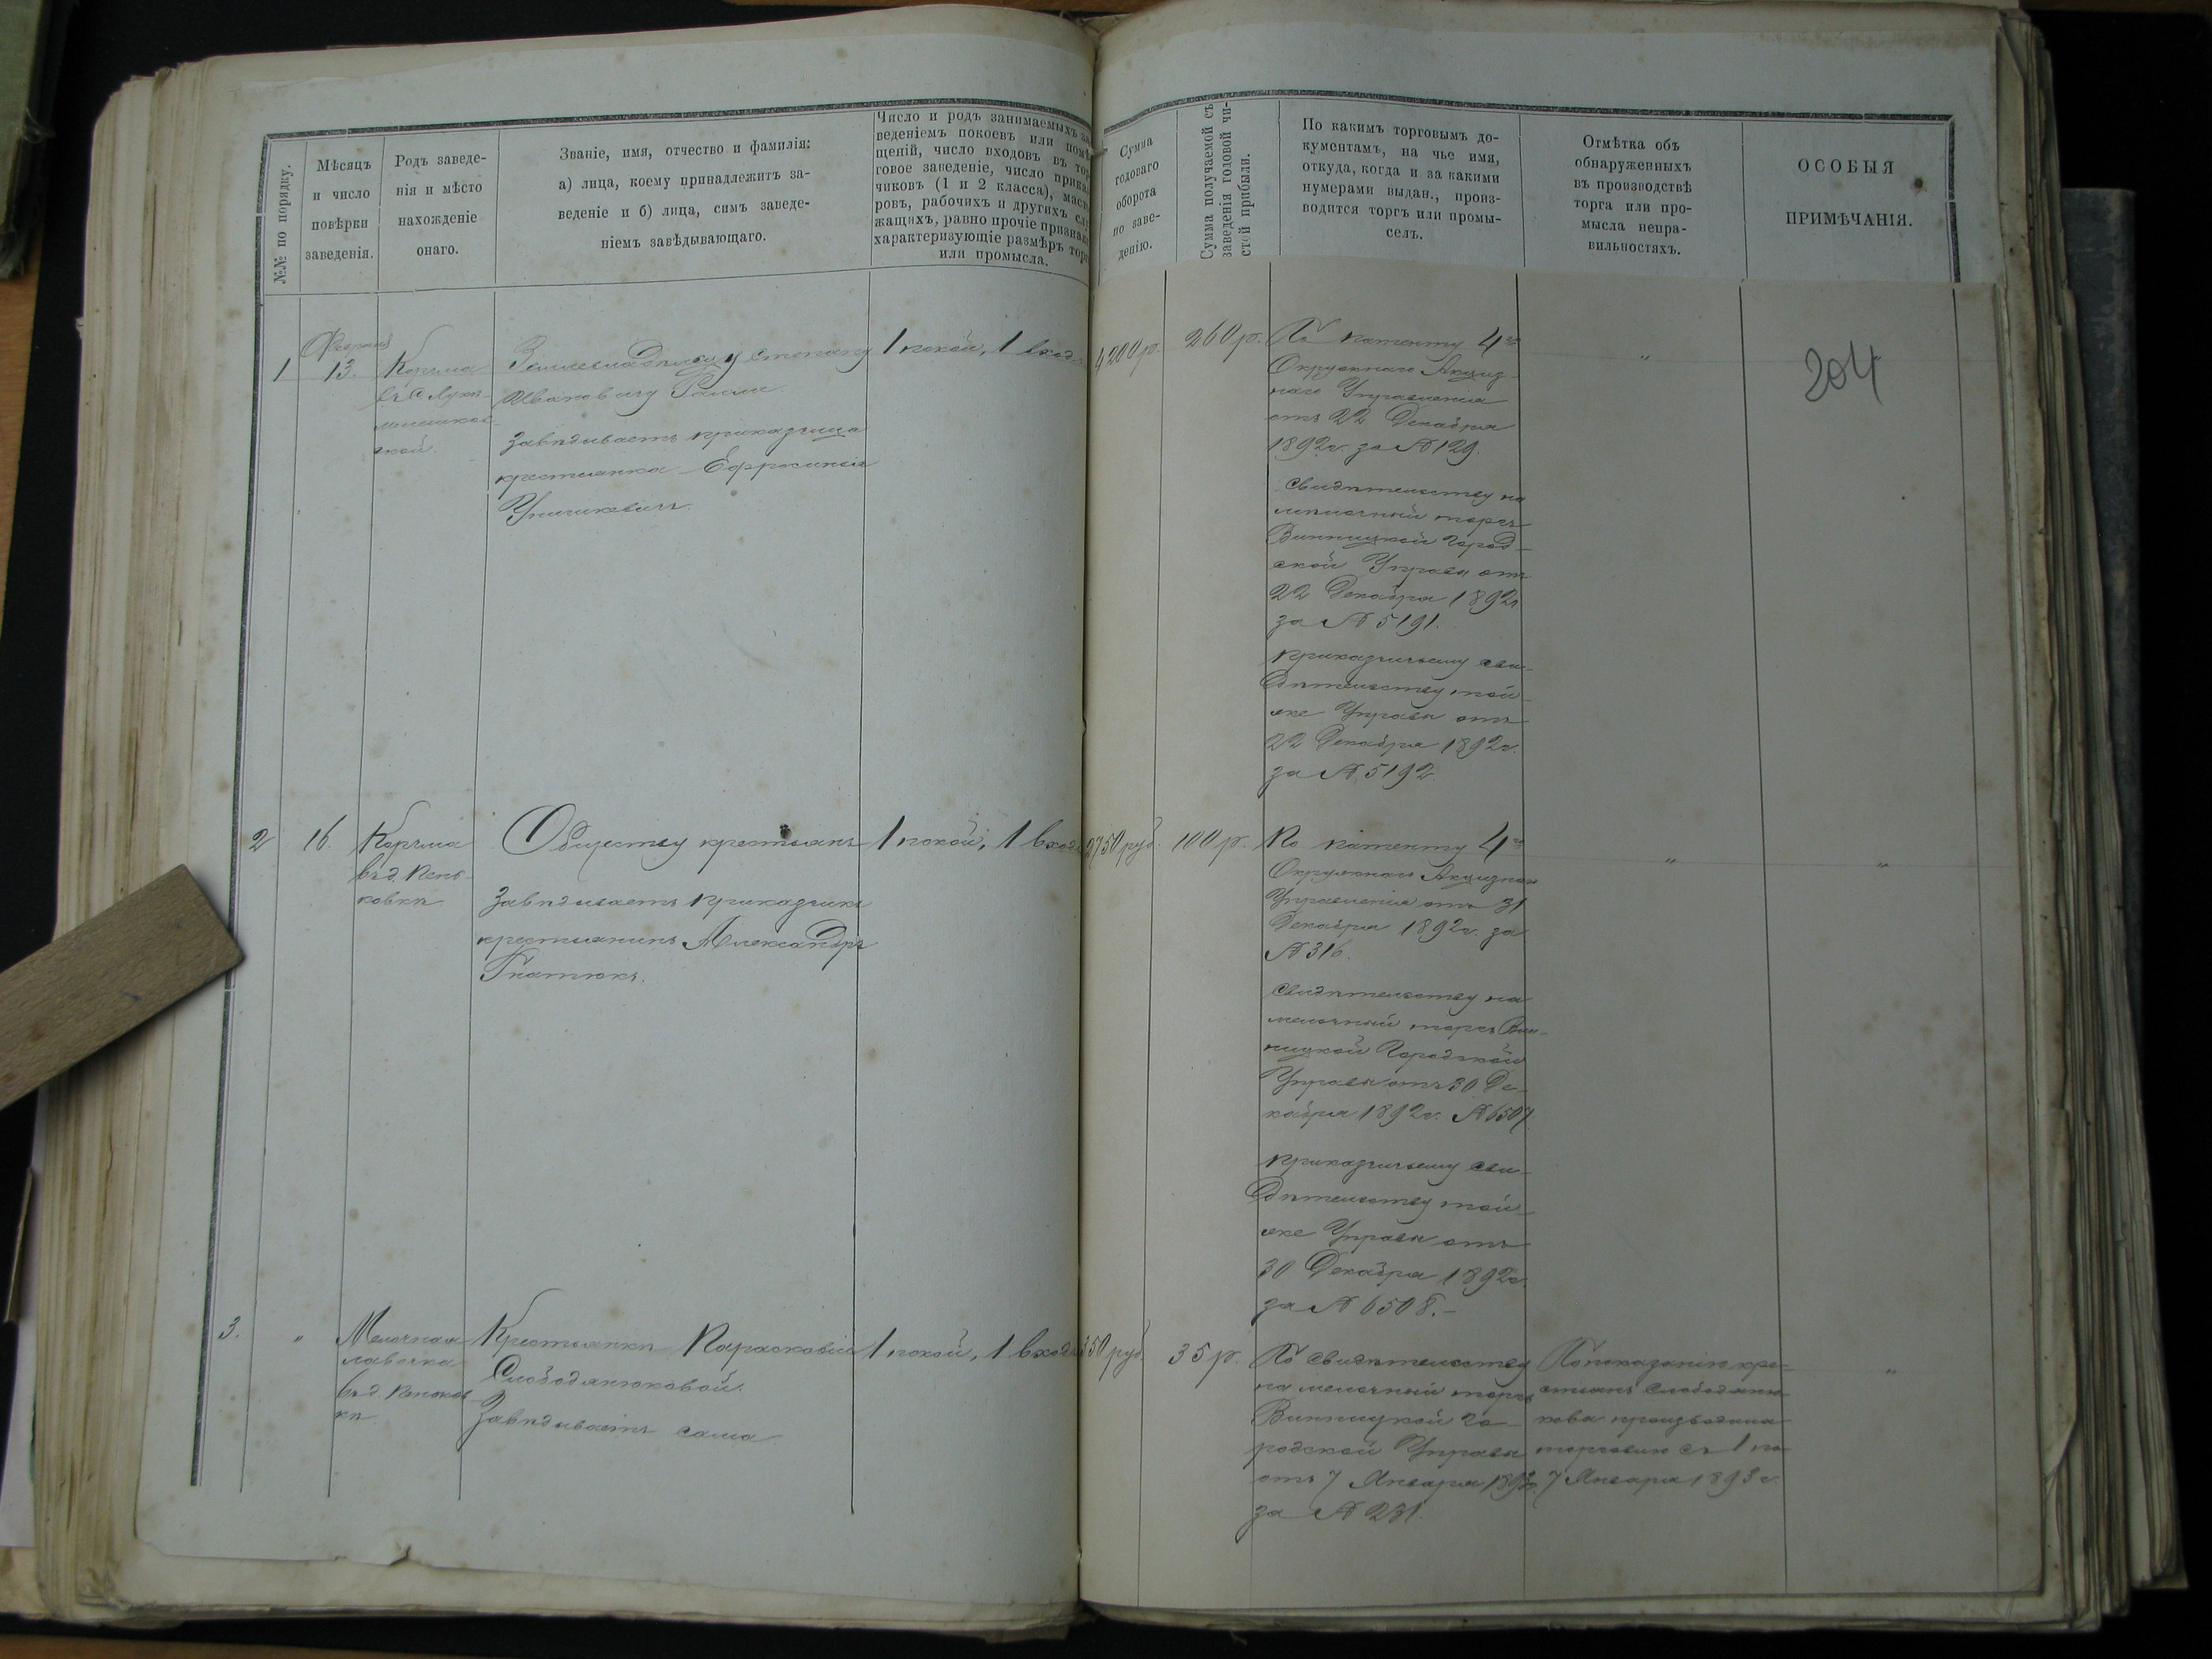 №№ по порядку.
Мѣсяцъ
и число
повѣрки
заведенія.
Родъ заведе-
нія и мѣсто
нахожденіе
онаго.
Званіе, имя, отчество и фамилія:
а) лица, коему принадлежитъ за-
веденіе и б) лица, симъ заведе-
ніемъ завѣдывающаго.
Число и родъ занимаемыхъ за-
веденіемъ покоевъ или помѣ-
щеній, число входовъ въ тор-
говое заведеніе, число прика-
чиковъ (1 и 2 класса), масте-
ровъ, рабочихъ и другихъ слу-
жащихъ, равно прочіе признаки
характеризующіе размѣръ торга
или промысла.
Сумма
годоваго
оборота
по заве-
денію.
Сумма получаемой съ
заведенія годовой чи-
стой прибыли.
По какимъ торговымъ до-
кументамъ, на чье имя,
откуда, когда и за какими
нумерами выдан., произ-
водится торгъ или промы-
селъ.
Отмѣтка объ
обнаруженныхъ
въ производствѣ
торга или про-
мысла непра-
вильностяхъ.
ОСОБЫЯ
ПРИМѢЧАНІЯ.
1.
Февраля
13.
Корчма
въ с.
ской.
Землевладѣльцу Степану
Ивановичу
Завѣдываетъ приказчица
крестьянка Ефросинія
1 покой, 1 входъ
4200 р.
260 р.
По патенту 4го
Окружнаго Акциз-
наго Управленія
отъ 22 Декабря
1892г. за № 129.
Свидѣтельству на
мелочный торгъ
Винницкой Город-
ской Управы отъ
22 Декабря 1892г
за № 5191.
Приказчичьему сви-
дѣтельству той-
же Управы отъ
22 Декабря 1892г.
за № 5192.
"
204
2
16.
Корчма
въ д. Пень-
ковкѣ
Обществу крестьянъ
Завѣдываетъ приказчикъ
крестьянинъ Александръ
Гнатюкъ.
1 покой, 1 входъ
2750 руб.
100 р.
По патенту 4го
Окружнаго Акцизнаго
Управленія отъ 31
Декабря 1892г. за
№ 316.
Свидѣтельству на
мелочный торгъ Вин-
ницкой Городской
Управы отъ 30 Де-
кабря 1892г. № 6507
Приказчичьему сви-
дѣтельству той-
же Управы отъ
30 Декабря 1892г.
за № 6508.-
"
"
3.
"
Мелочная
лавочка
въ д. Пеньков-
кѣ
Крестьянкѣ Парасковіи
Слободянюковой.
Завѣдываетъ сама
1 покой, 1 входъ
350 руб.
35 р.
По свидѣтельству
на мелочный торгъ
Винницкой Го-
родской Управы
отъ 7 Января 1893г.
за № 231.
По показанію кре-
стьянъ Слободяню-
кова производила
торговлю съ 1 по
7 Января 1893 г.
"